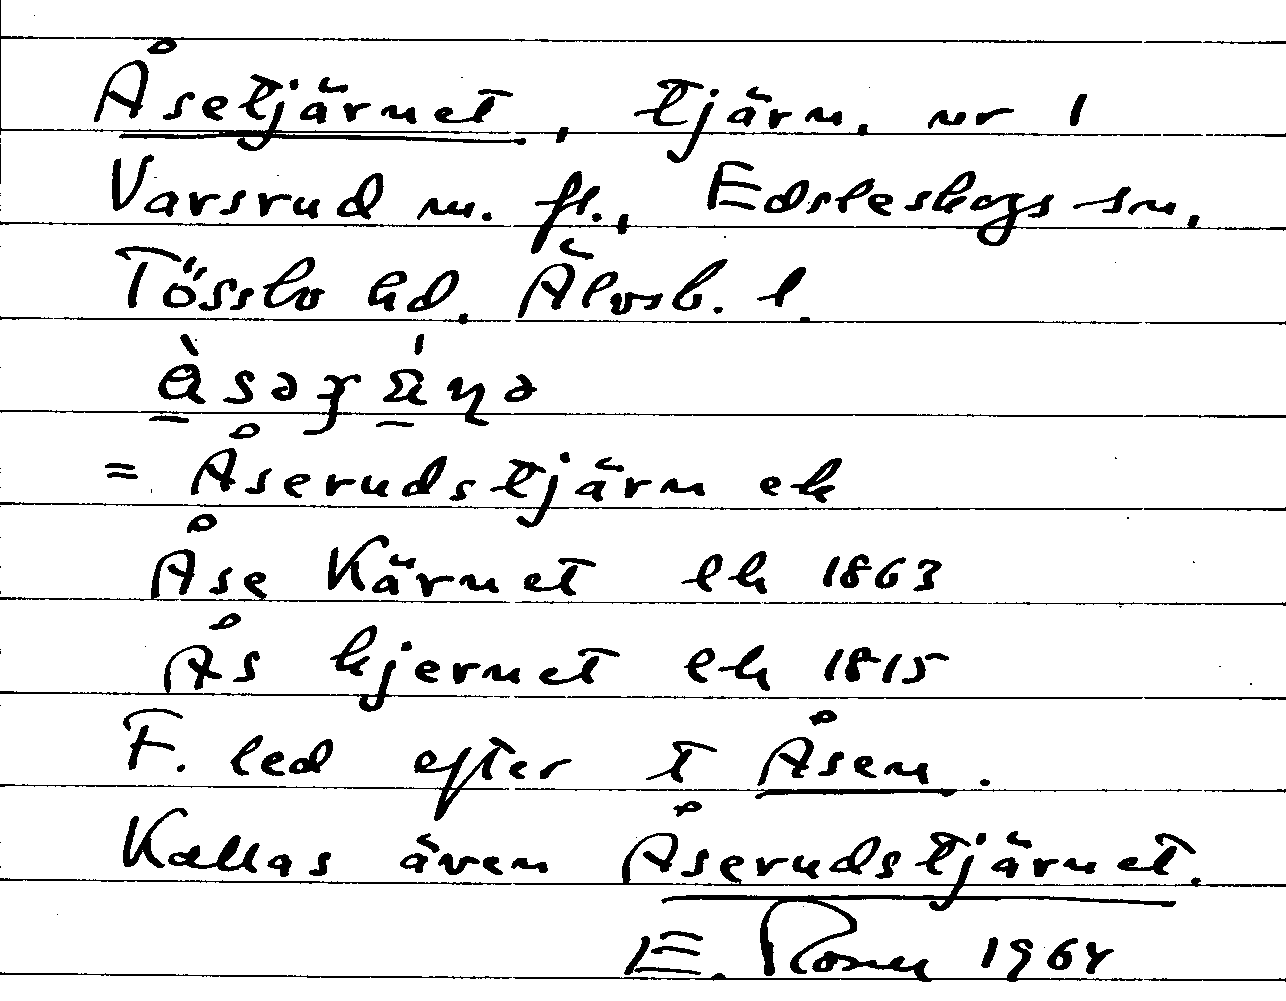 Åsetjärnet, tjärn, nr 1
Varsrud m. fl., Edsleskogs sn,
Tössbo hd. Älvsb. l.
= Åserudstjärn ek
Åse Kärnet lh 1863
Ås kjernet lh 1815
F. led efter t Åsen.
Kallas även Åserudstjärnet.
E. 1964